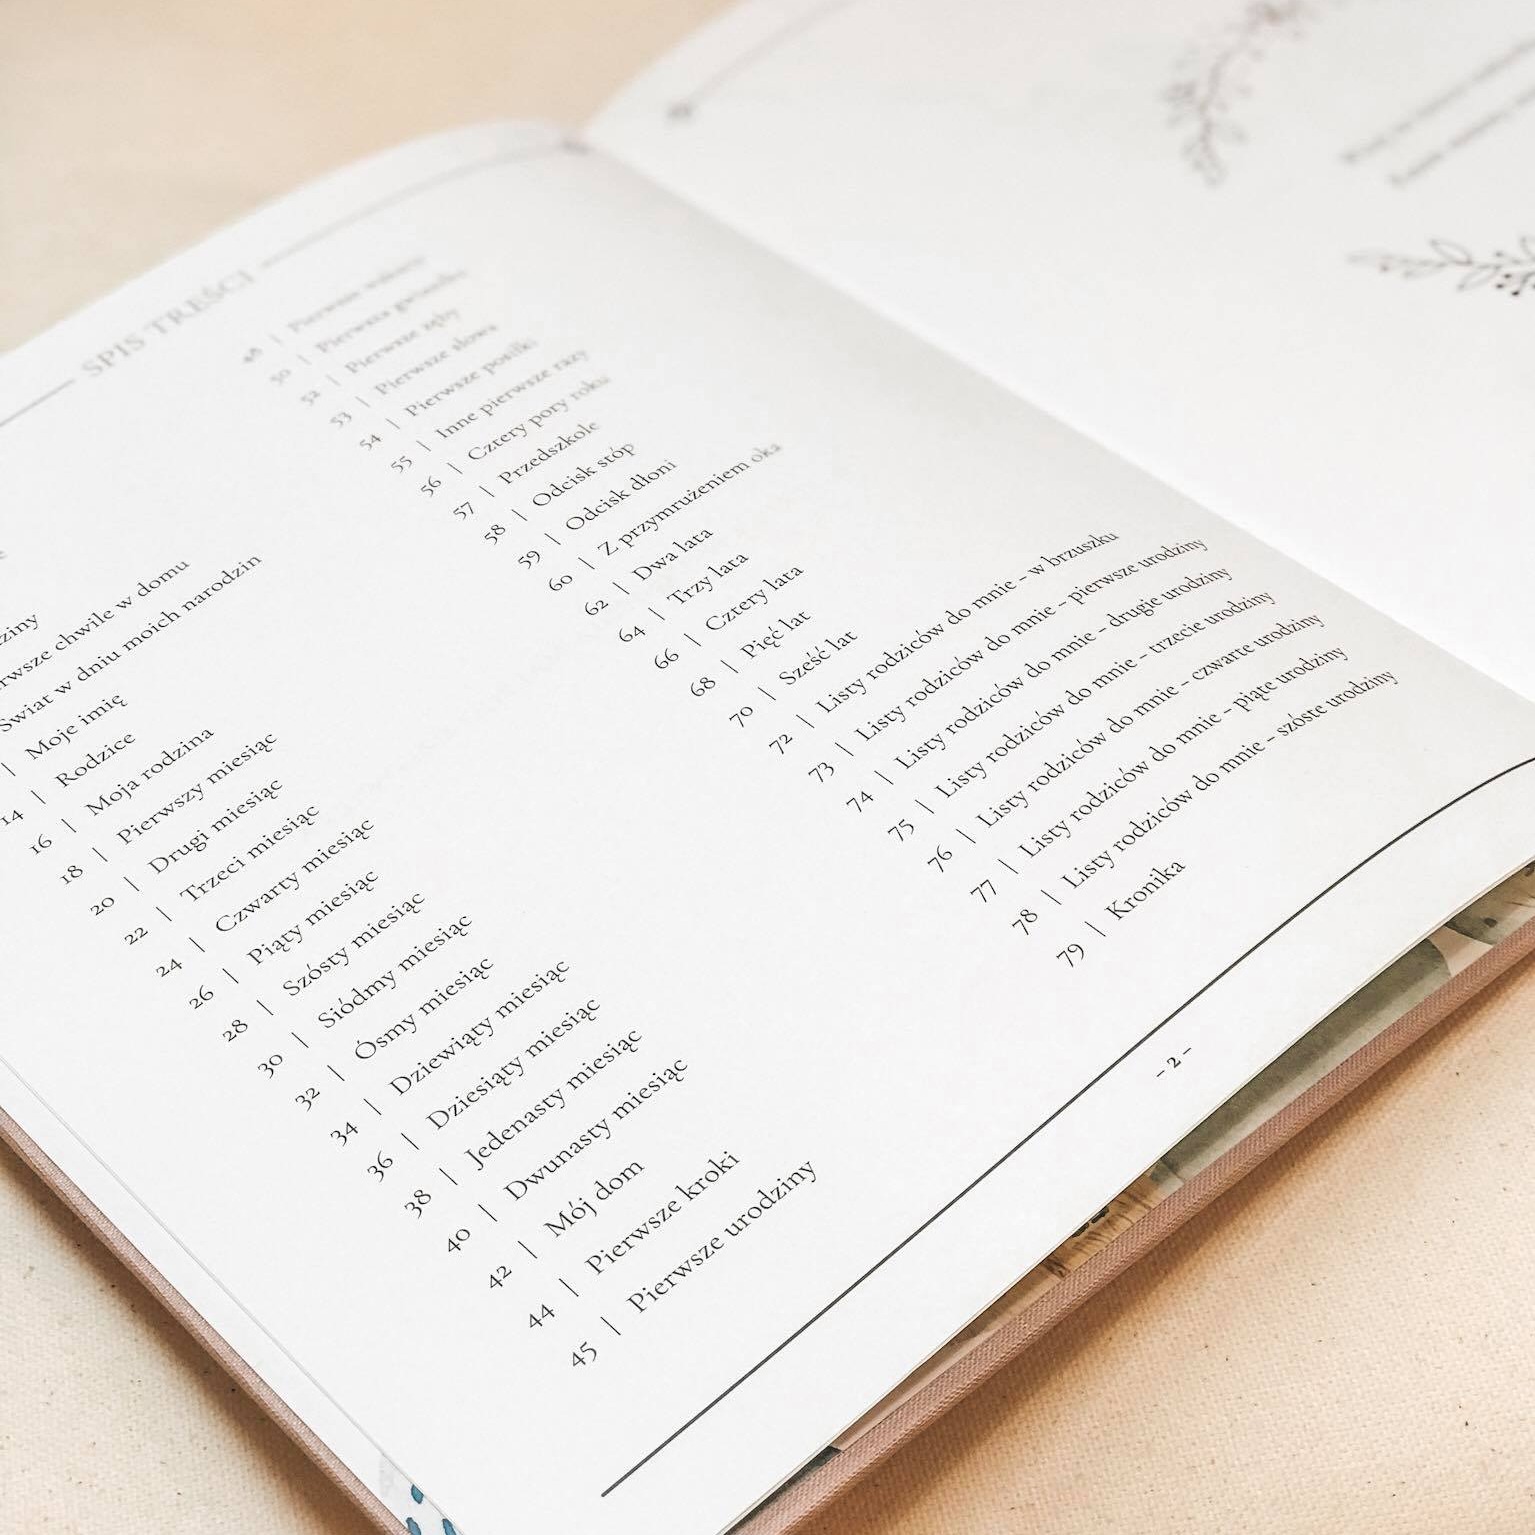 SPIS TREŚCI
chwile w domu
Świat w dniu moich narodzin
| Moje imię
14 | Rodzice
16 | Moja rodzina
18 | Pierwszy miesiąc
20 | Drugi miesiąc
22 | Trzeci miesiąc
24 | Czwarty miesiąc
26 | Piąty miesiąc
28 | Szósty miesiąc
30 | Siódmy miesiąc
32 | Ósmy miesiąc
34 | Dziewiąty miesiąc
36 | Dziesiąty miesiąc
38 | Jedenasty miesiąc
40 | Dwunasty miesiąc
42 | Mój dom
44 | Pierwsze kroki
45 | Pierwsze urodziny
48 | Pierwsze wakacje
50 | Pierwsza gwiazdka
52 | Pierwsze zęby
53 | Pierwsze słowa
54 | Pierwsze posiłki
55 | Inne pierwsze razy
56 | Cztery pory roku
57 | Przedszkole
58 | Odcisk stóp
59 | Odcisk dłoni
60 | Z przymrużeniem oka
62 | Dwa lata
64 | Trzy lata
66 | Cztery lata
68 | Pięć lat
70 | Sześć lat
72 | Listy rodziców do mnie – w brzuszku
73 | Listy rodziców do mnie – pierwsze urodziny
74 | Listy rodziców do mnie – drugie urodziny
75 | Listy rodziców do mnie – trzecie urodziny
76 | Listy rodziców do mnie – czwarte urodziny
77 | Listy rodziców do mnie – piąte urodziny
78 | Listy rodziców do mnie – szóste urodziny
79 | Kronika
– 2 –